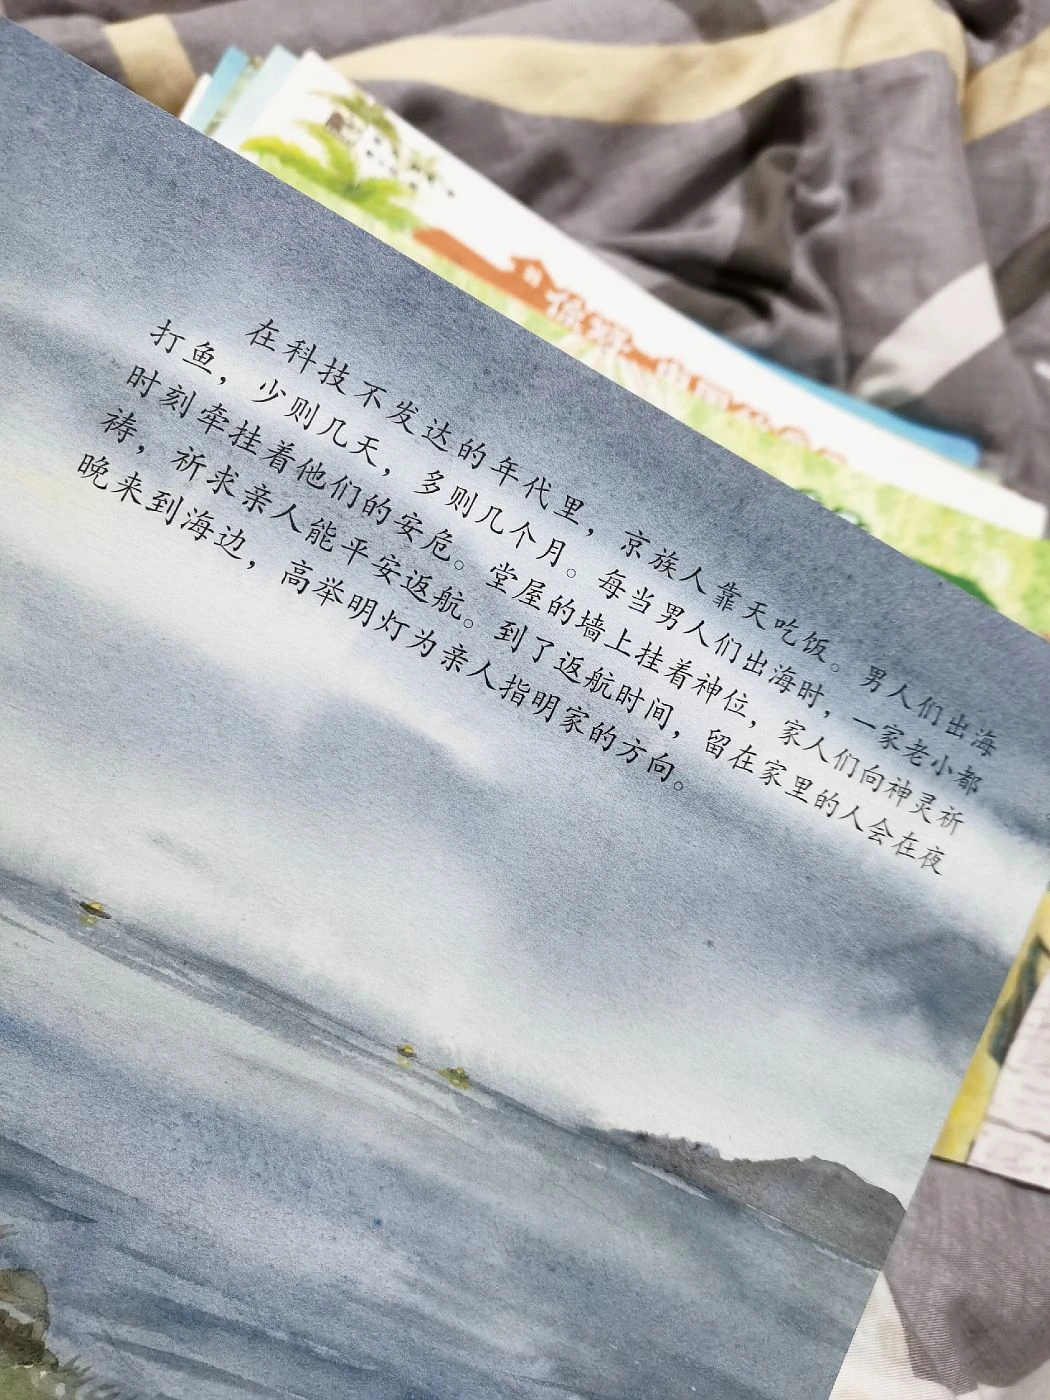 在科技不发达的年代里，京族人靠天吃饭。男人们出海
打鱼，少则几天，多则几个月。每当男人们出海时，一家老小都
时刻牵挂着他们的安危。堂屋的墙上挂着神位，家人们向神灵祈
祷，祈求亲人能平安返航。到了返航时间，留在家里的人会在夜
晚来到海边，高举明灯为亲人指明家的方向。